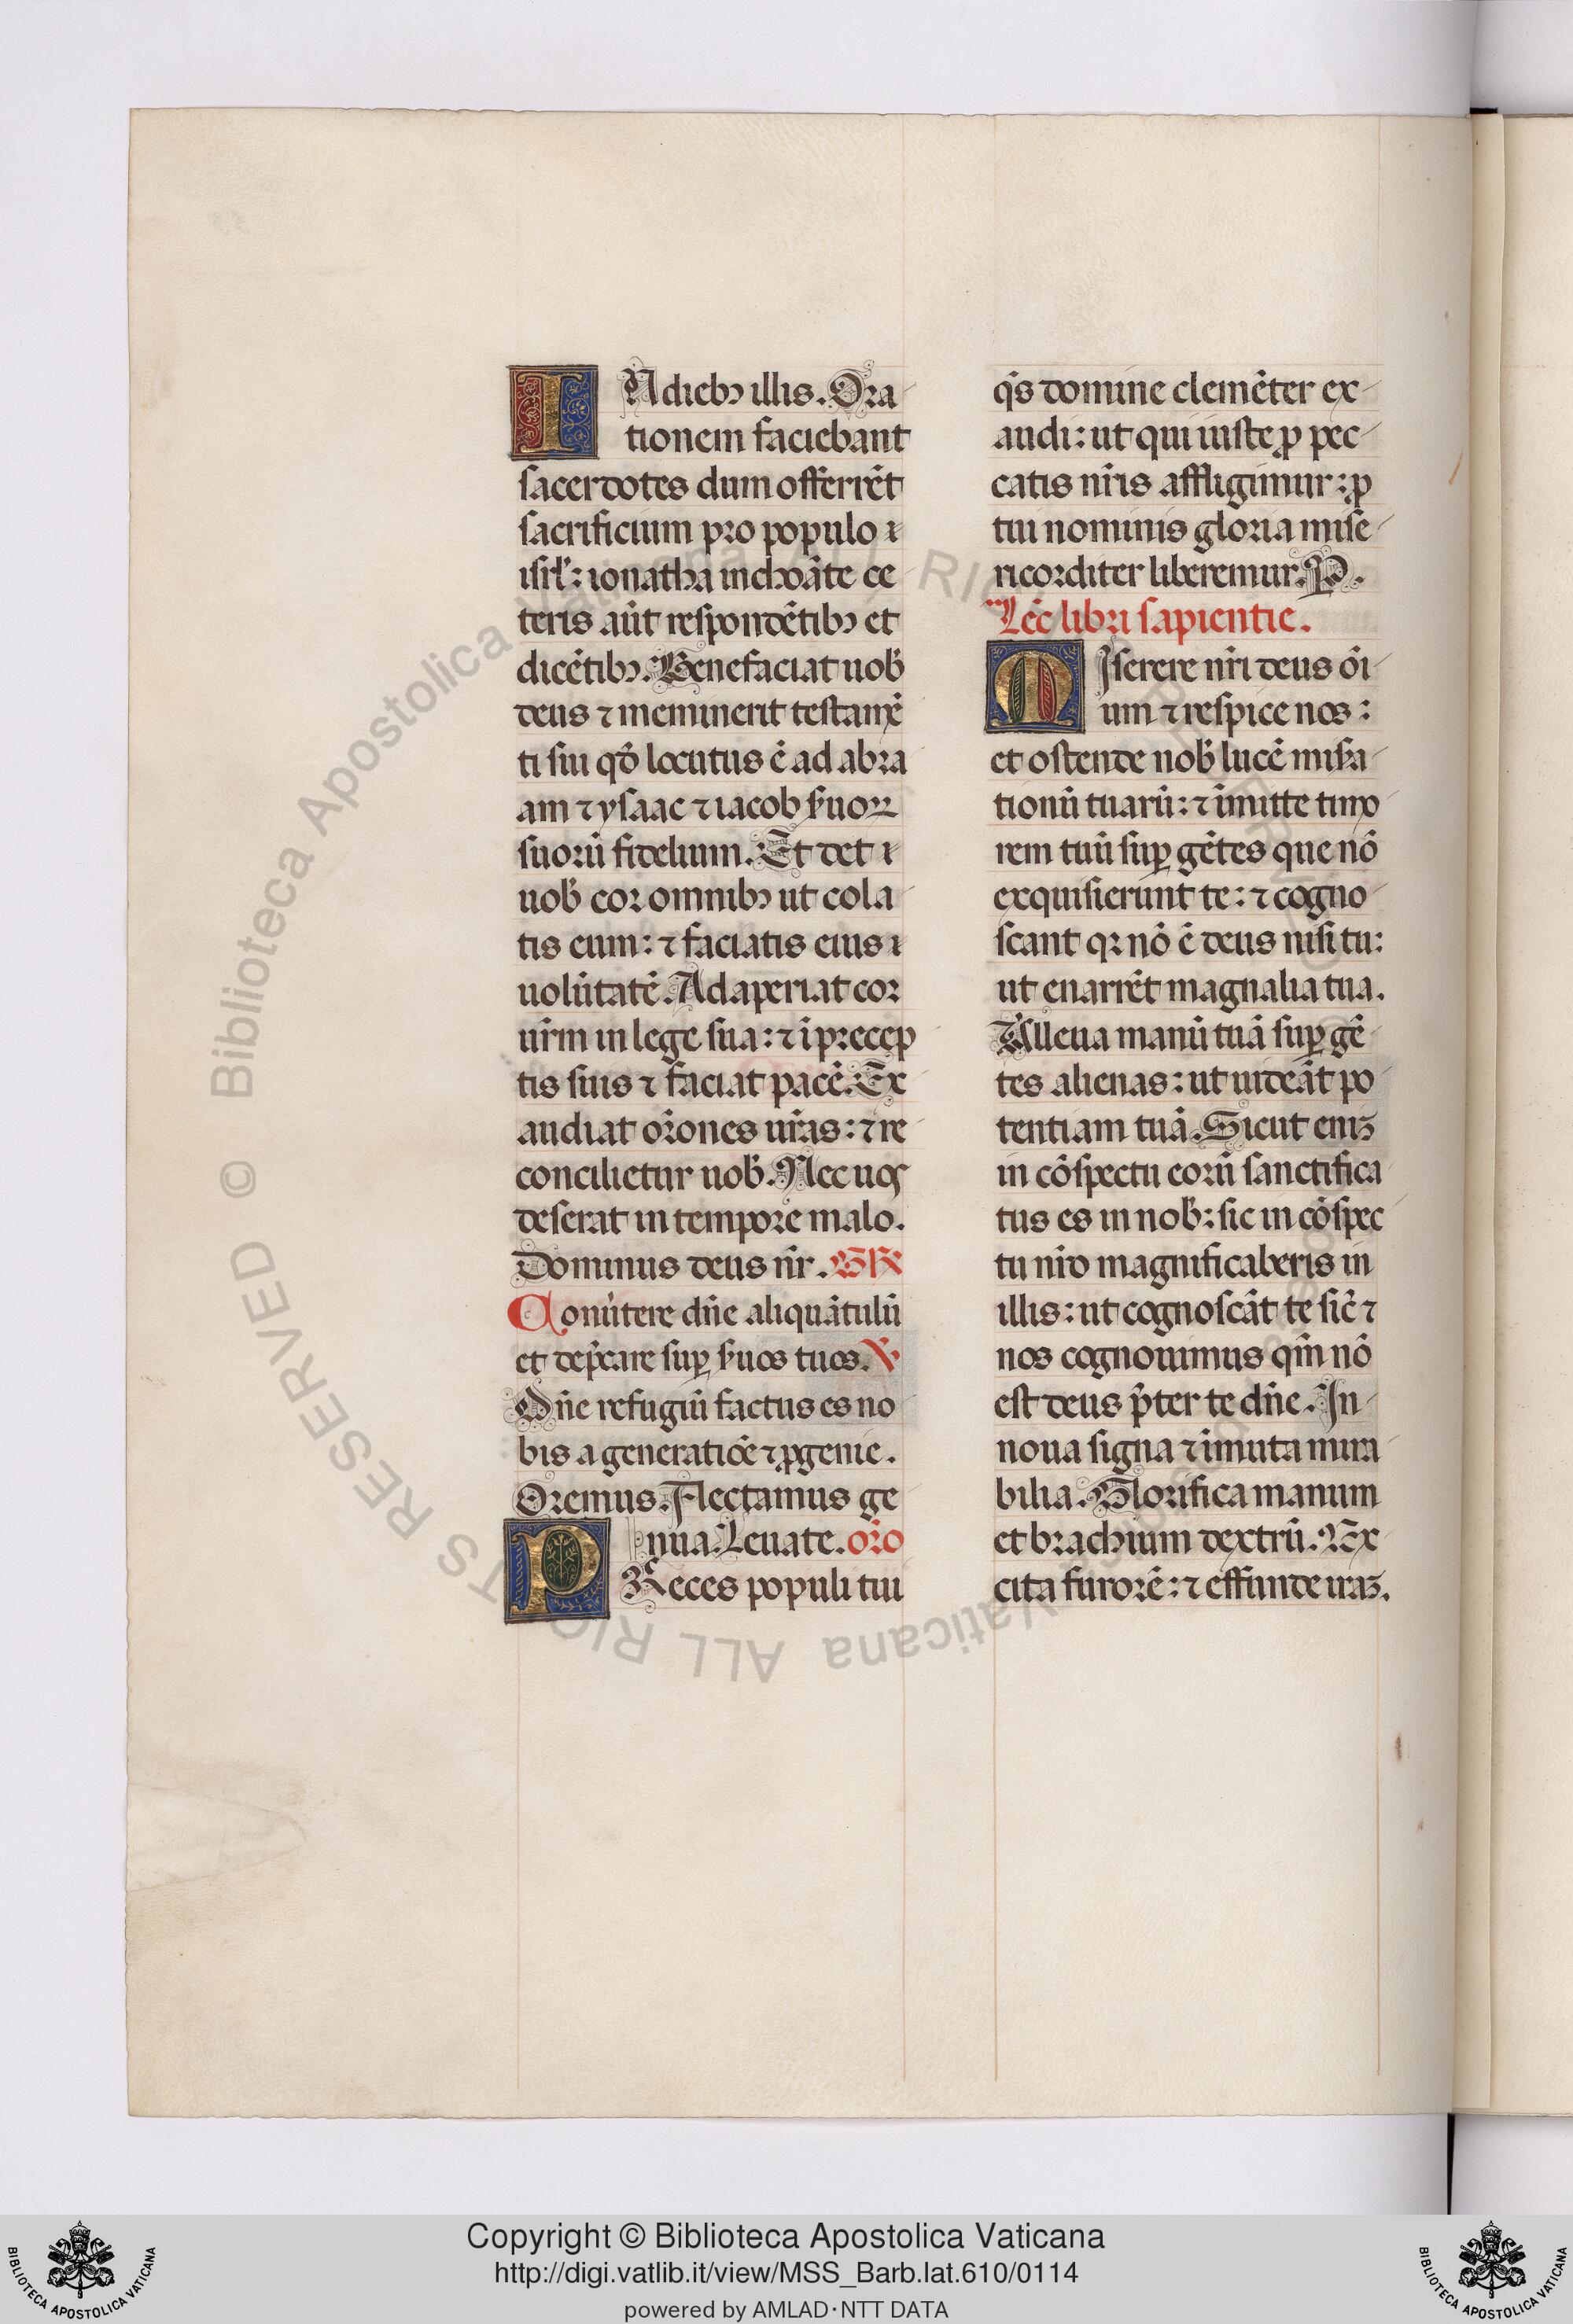 IN diebꝫ illis. Ora
tionem faciebant
sacerdotes dum offerrēt
sacrificium pro populo
isrl': ionatha inchoāte ce
teris aūt respondētibꝫ et
dicētibꝫ. Benefaciat uob'
deus ⁊ meminerit testamē
ti sui qd̄ locutus ē ad abra
am ⁊ ysaac ⁊ iacob s'uoꝝ
suorū fidelium. Et det
uob' cor omnibꝫ ut cola
tis eum: ⁊ faciatis eius
uolūtatē. Adaperiat cor
ur̄m in lege sua: ⁊ ī precep
tis suis ⁊ faciat pacē. Ex
audiat or̄ones ur̄as: ⁊ re
concilietur uob'. Nec uos
deserat in tempore malo.
Dominus deus nr̄. GR
Conūtere dn̄e aliquātulū
et dep̄care suꝑ s'uos tuos. V
Dn̄e refugiū factus es no
bis a generatiōe ⁊ ꝓgenie.
Oremus. Flectamus ge
nua. Leuate. or̄o
PReces populi tui
qs̄ domine clemēter ex
audi: ut qui iuste ꝓ pec
catis nr̄is affligimur: ꝓ
tui nominis gloria mise
ricorditer liberemur. P.
Lēc libri sapientie.
MIserere nr̄i deus oī
um ⁊ respice nos:
et ostende nob' lucē mis'a
tionū tuarū: ⁊ īmitte timo
rem tuū suꝑ gētes que nō
exquisierunt te: ⁊ cogno
scant qꝛ nō ē deus nisi tu:
ut enarrēt magnalia tua.
Alleua manū tuā suꝑ gē
tes alienas: ut uideāt po
tentiam tuā. Sicut eniꝫ
in cōspectu eorū sanctifica
tus es in nob': sic in cōspec
tu nr̄o magnificaberis in
illis: ut cognoscāt te sic̄ ⁊
nos cognouimus qm̄ nō
est deus p̄ter te dn̄e. In
noua signa ⁊ īmuta mira
bilia. Glorifica manum
et brachium dextrū. Ex
cita furorē: ⁊ effunde iraꝫ.
Copyright © Biblioteca Apostolica Vaticana
http://digi.vatlib.it/view/MSS_Barb.lat.610/0114
powered by AMLAD·NTT DATA
BIBLIOTECA APOSTOLICA VATICANA
BIBLIOTECA APOSTOLICA VATICANA
© Biblioteca Apostolica Vaticana ALL RIGHTS RESERVED